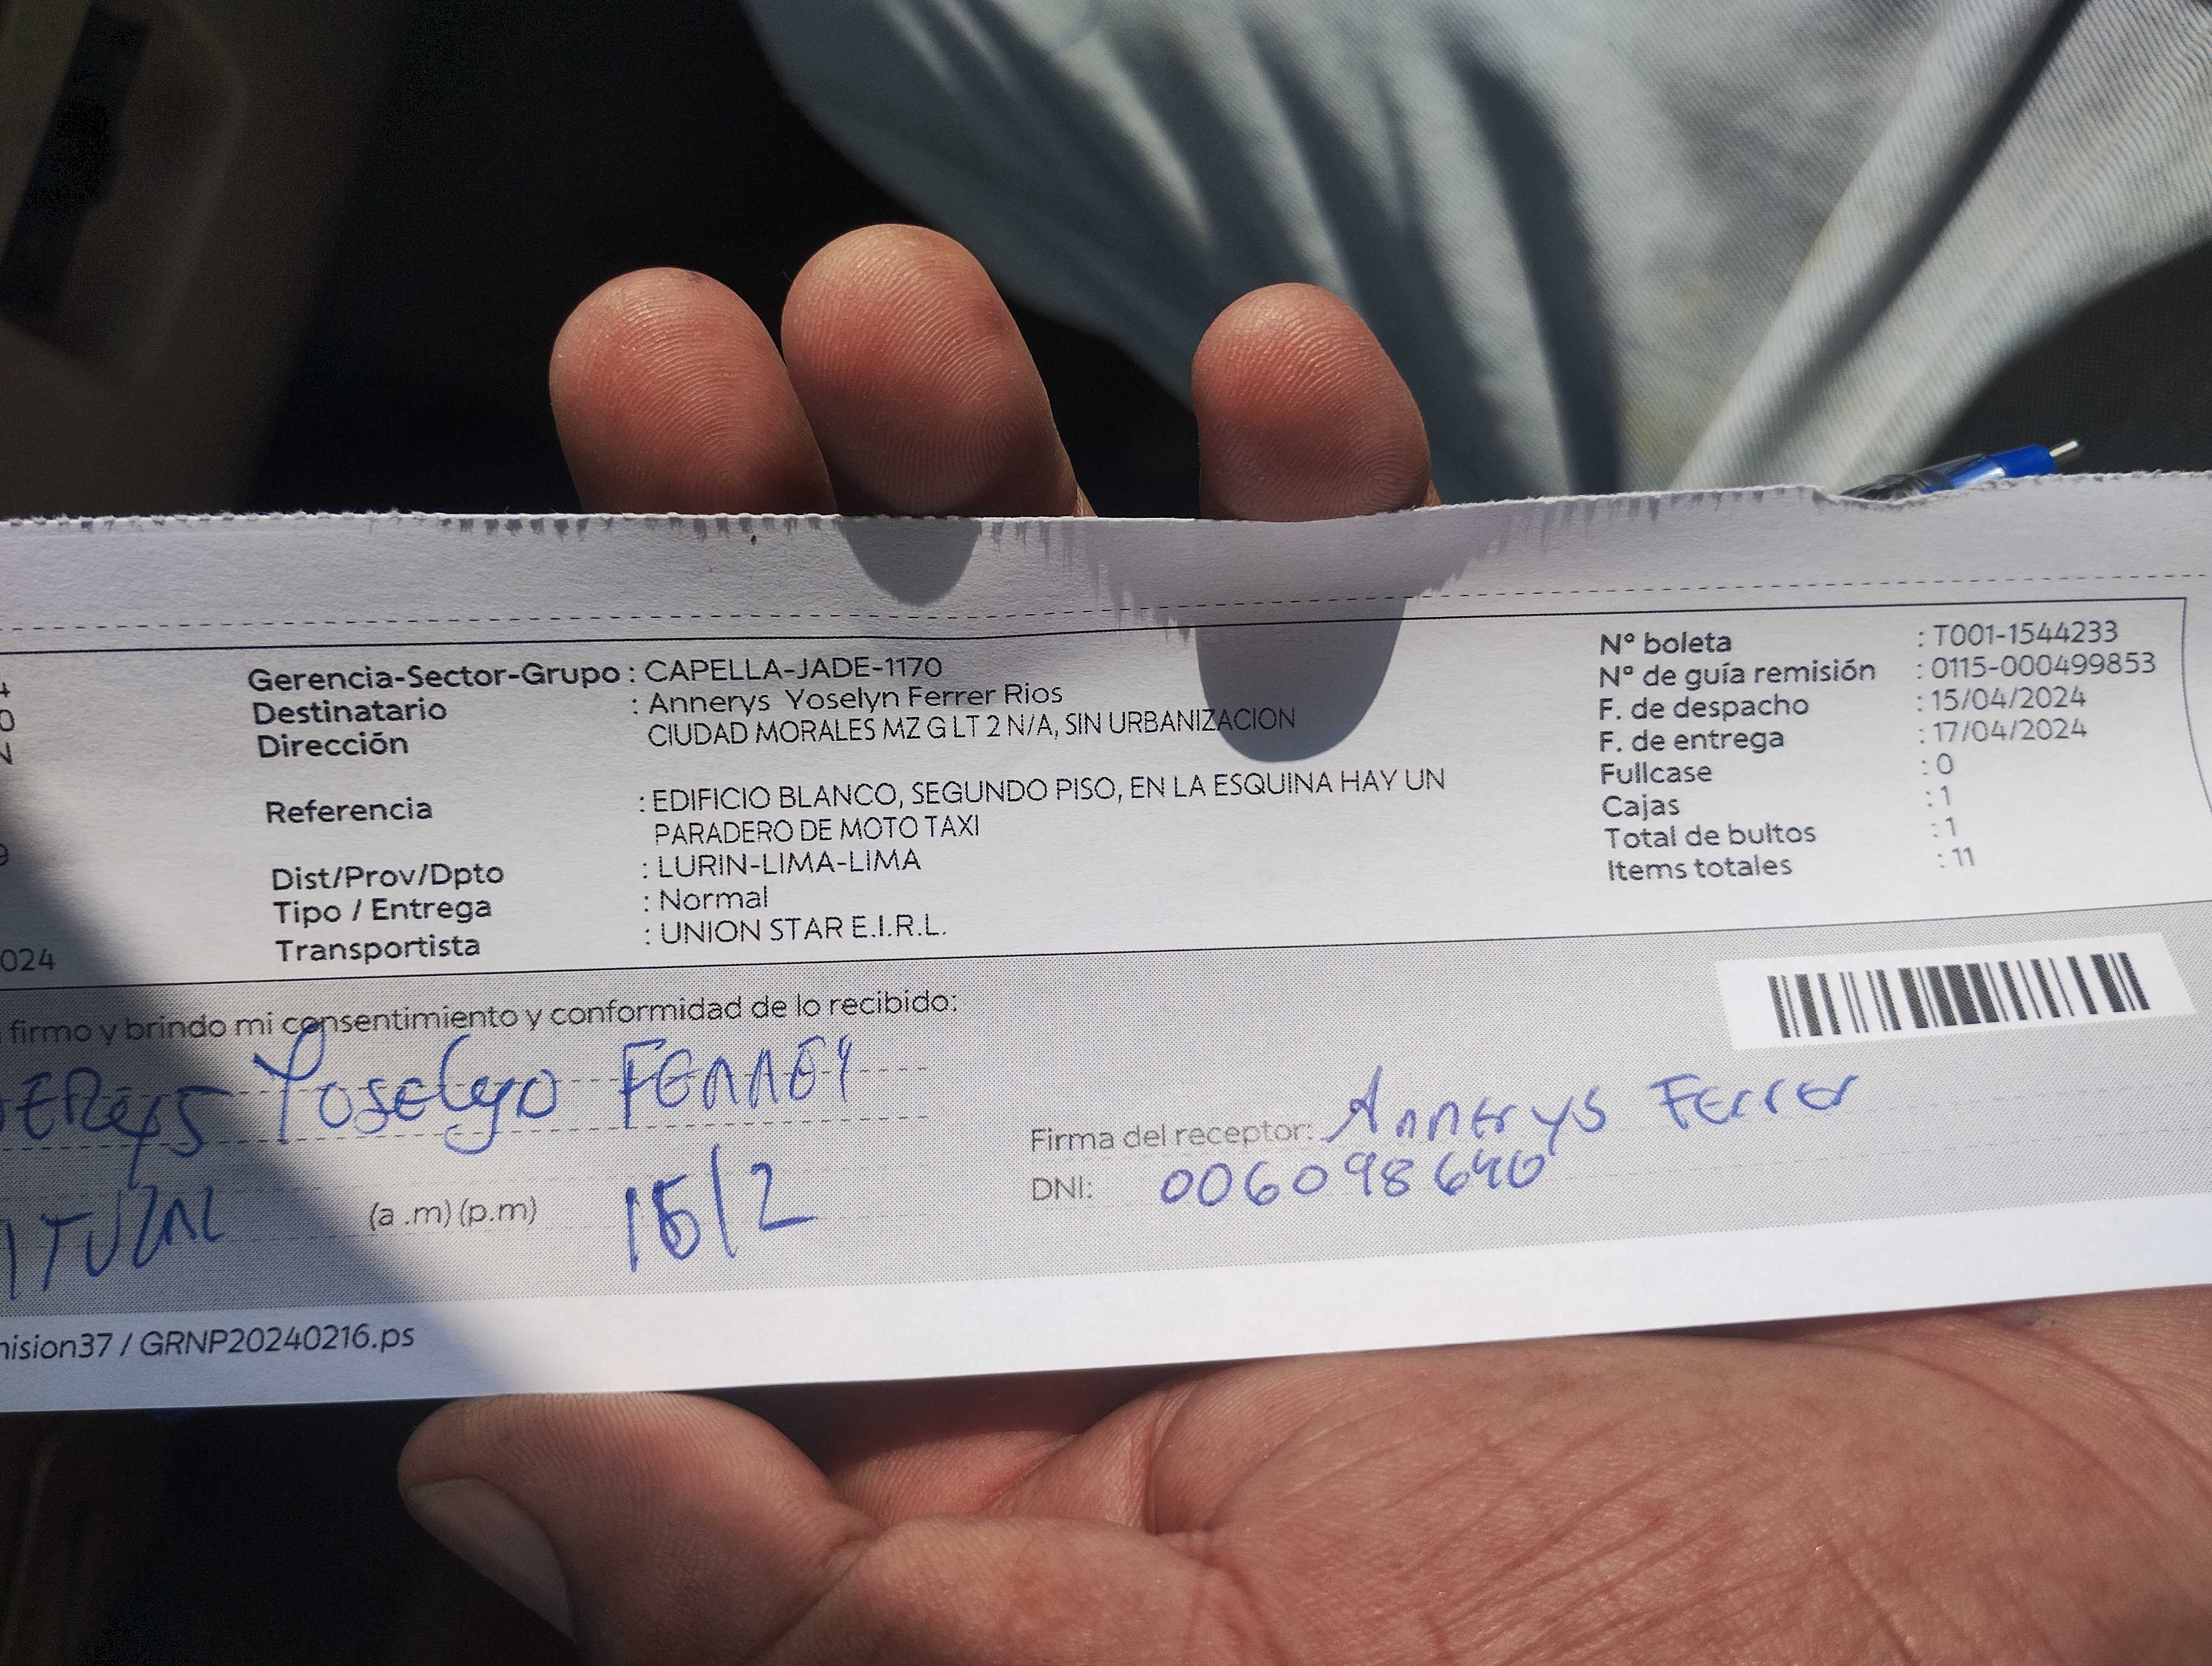 Gerencia-Sector-Grupo : CAPELLA-JADE-1170
Destinatario : Annerys Yoselyn Ferrer Rios
Dirección CIUDAD MORALES MZ G LT 2 N/A, SIN URBANIZACION
Referencia : EDIFICIO BLANCO, SEGUNDO PISO, EN LA ESQUINA HAY UN
PARADERO DE MOTO TAXI
Dist/Prov/Dpto : LURIN-LIMA-LIMA
Tipo / Entrega : Normal
Transportista : UNION STAR E.I.R.L.
024
Nº boleta : T001-1544233
Nº de guía remisión : 0115-000499853
F. de despacho : 15/04/2024
F. de entrega : 17/04/2024
Fullcase : 0
Cajas : 1
Total de bultos : 1
Items totales : 11
firmo y brindo mi consentimiento y conformidad de lo recibido:
Yoselyn
(a .m) (p.m)
Firma del receptor: Annerys Ferrer
DNI: 006098640
nision37 / GRNP20240216.ps